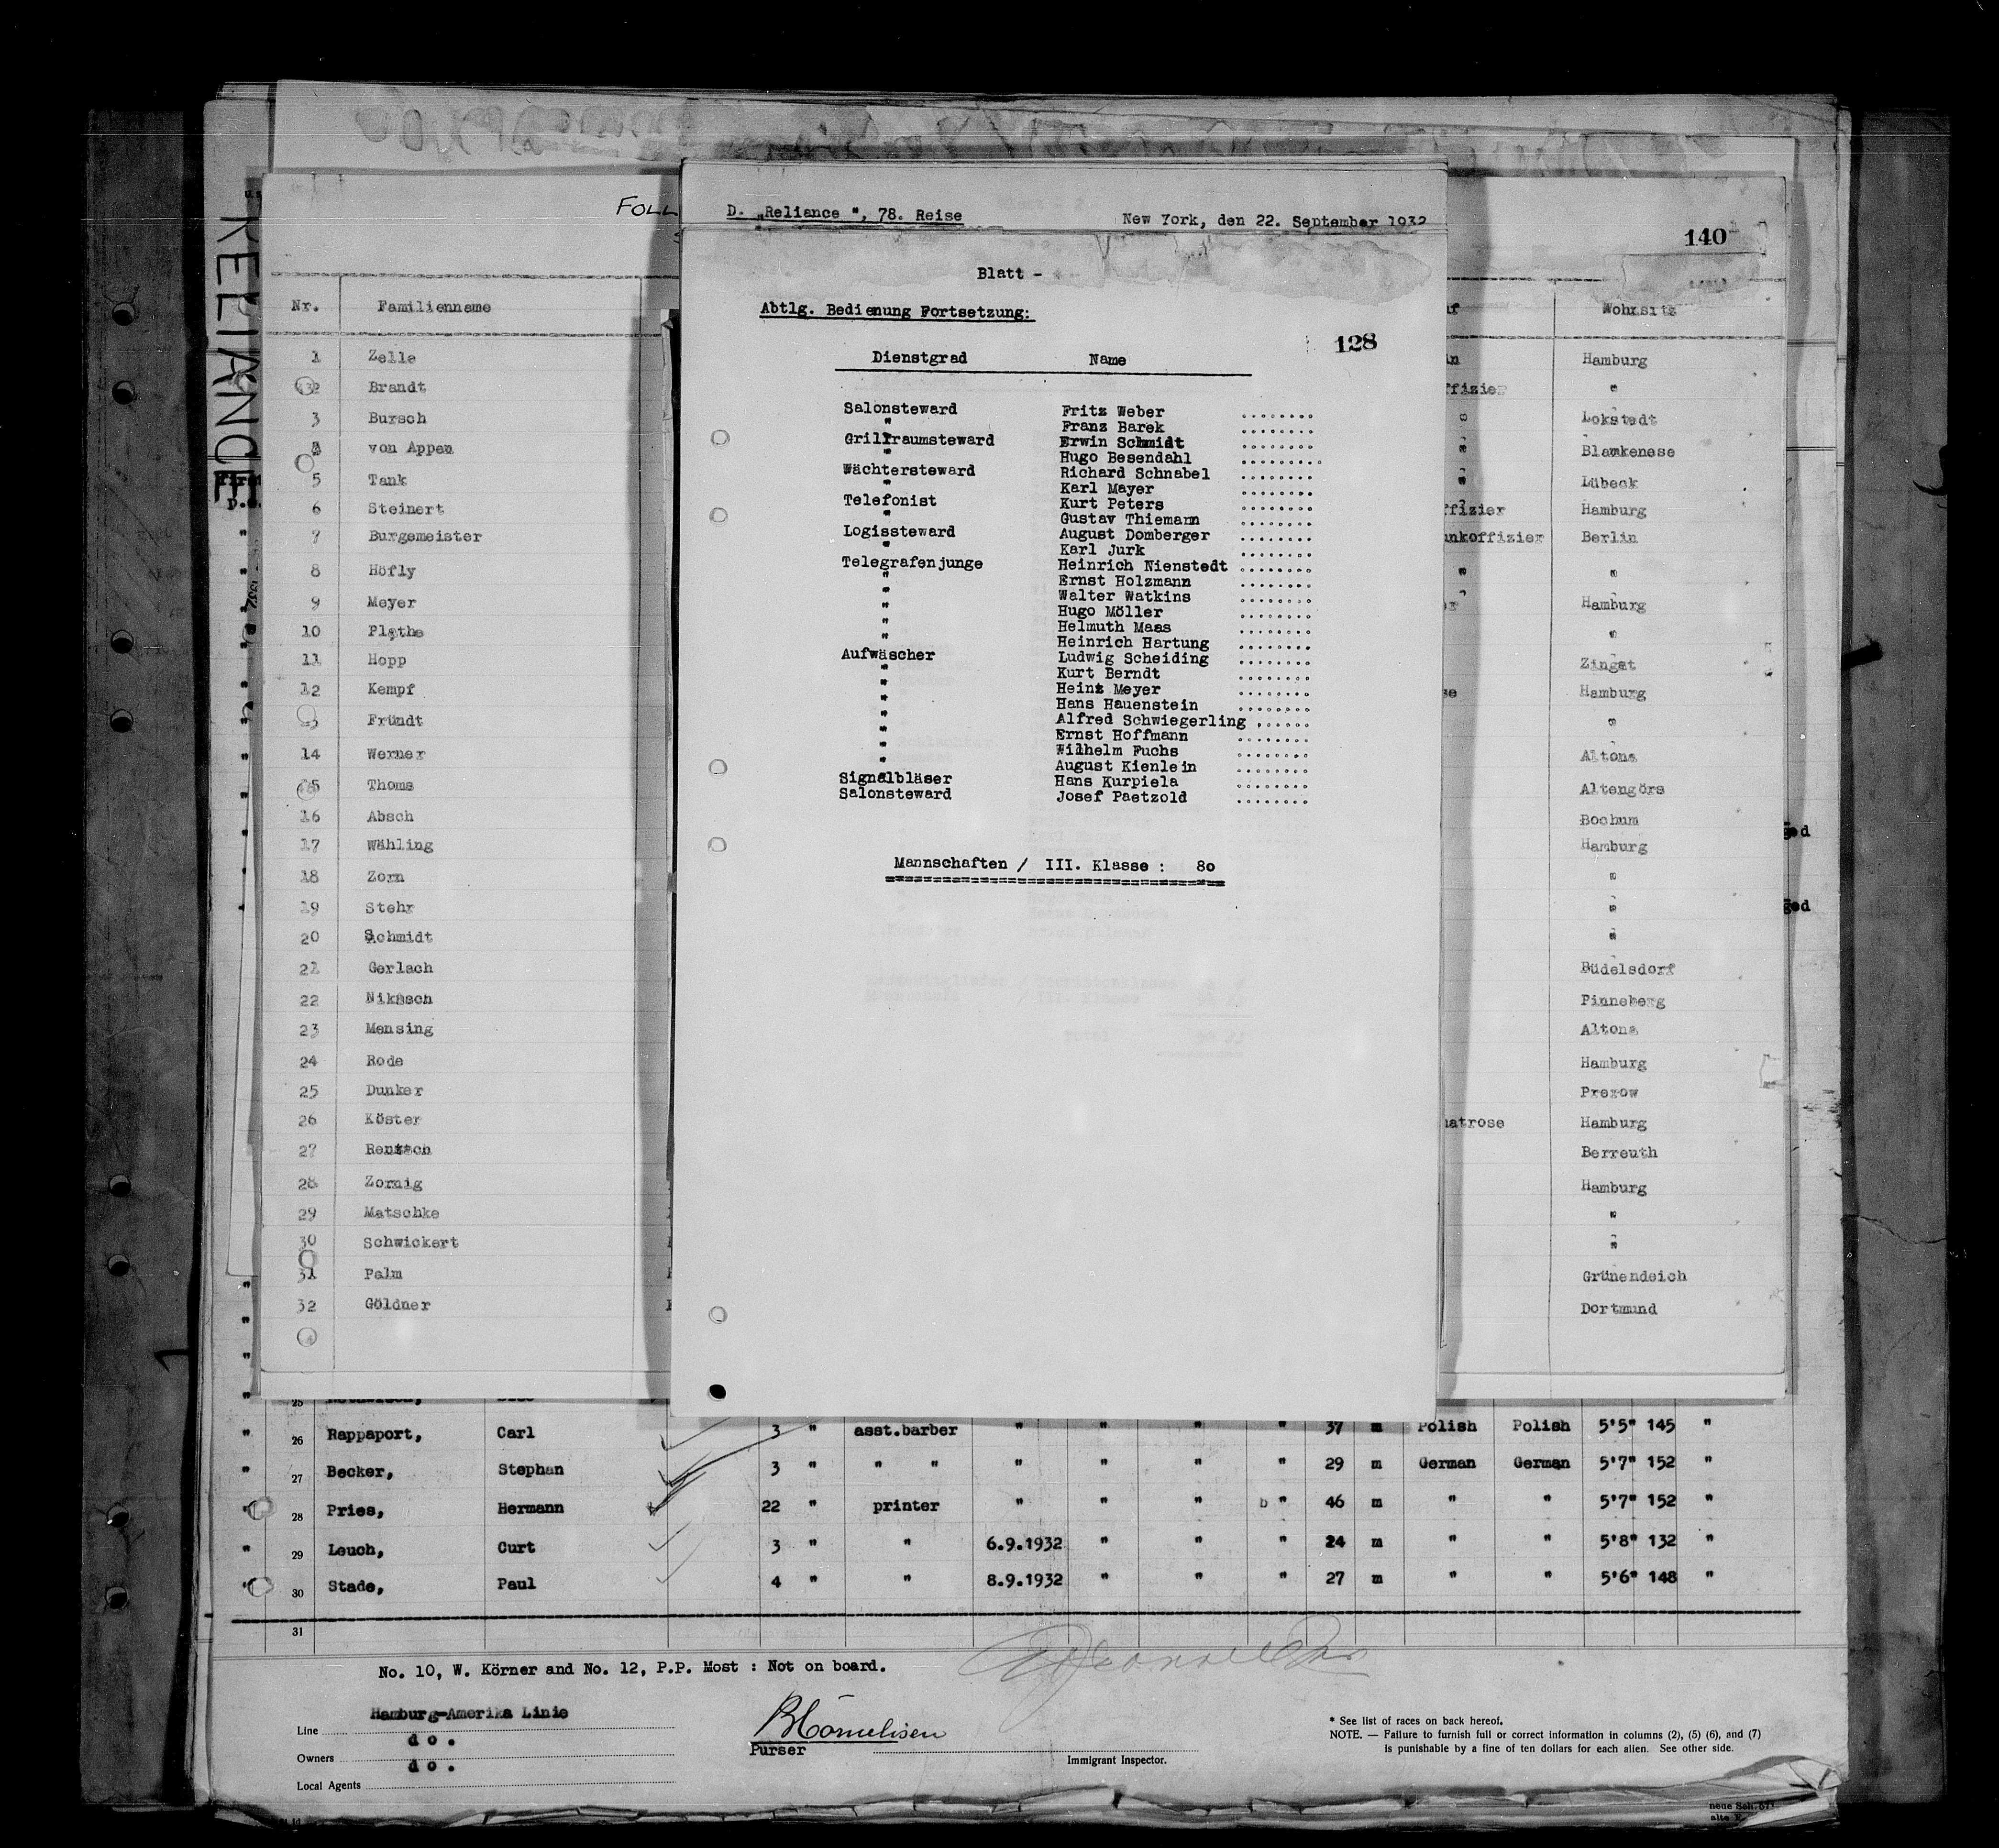 RELIANCE
FOLL
140
Nr. Familienname Wohnsitz
1 Zelle Hamburg
2 Brandt ffizier "
3 Bursch " Lokstedt
4 von Appen " Blankenese
5 Tank " Lübeck
6 Steinert ffizier Hamburg
7 Burgemeister unkoffizier Berlin
8 Höfly " "
9 Meyer Hamburg
10 Plathe "
11 Hopp Zingst
12 Kempf Hamburg
Fründt "
14 Werner Altona
15 Thoms Altengörs
16 Absch Bochum
17 Wähling Hamburg
18 Zorn "
19 Stehr "
20 Schmidt "
21 Gerlach Büdelsdorf
22 Nikasch Pinneberg
23 Mensing Altona
24 Rode Hamburg
25 Dunker Prerow
26 Köster matrose Hamburg
27 Rentsch Berreuth
28 Zornig Hamburg
29 Matschke "
30 Schwickert "
31 Palm Grünendeich
32 Göldner Dortmund
D. „Reliance ", 78. Reise New York, den 22. September 1932
Blatt -
Abtlg. Bedienung Fortsetzung:
128
Dienstgrad Name
Salonsteward Fritz Weber ........
" Franz Barek ........
Grillraumsteward Erwin Schmidt ........
" Hugo Besendahl .........
Wächtersteward Richard Schnabel ........
" Karl Mayer ........
Telefonist Kurt Peters ........
" Gustav Thiemann ........
Logissteward August Domberger ........
" Karl Jurk ........
Telegrafenjunge Heinrich Nienstedt ........
" Ernst Holzmann ........
" Walter Watkins ........
" Hugo Möller ........
" Helmuth Maas ........
" Heinrich Hartung ........
Aufwäscher Ludwig Scheiding ........
" Kurt Berndt ........
" Heinz Meyer ........
" Hans Hauenstein ........
" Alfred Schwiegerling ......
" Ernst Hoffmann ........
" Wilhelm Fuchs ........
" August Kienlein ........
Signalbläser Hans Kurpiela ........
Salonsteward Josef Paetzold ........
Mannschaften / III. Klasse : 80
25
" 26 Rappaport, Carl 3 " asst.barber " " " " 37 m Polish Polish 5'5" 145 "
" 27 Becker, Stephan 3 " " " " " " " 29 m German German 5'7" 152 "
" 28 Pries, Hermann 22 " printer " " " b " 46 m " " 5'7" 152 "
" 29 Leuch, Curt 3 " " 6.9.1932 " " " 24 m " " 5'8" 132 "
" 30 Stade, Paul 4 " " 8.9.1932 " " " 27 m " " 5'6" 148 "
31
No. 10, W. Körner and No. 12, P.P. Most : Not on board.
Line Hamburg-Amerika Linie
Owners do.
Local Agents do.
BCornelisen
Purser
Immigrant Inspector.
* See list of races on back hereof.
NOTE. — Failure to furnish full or correct information in columns (2), (5) (6), and (7)
is punishable by a fine of ten dollars for each alien. See other side.